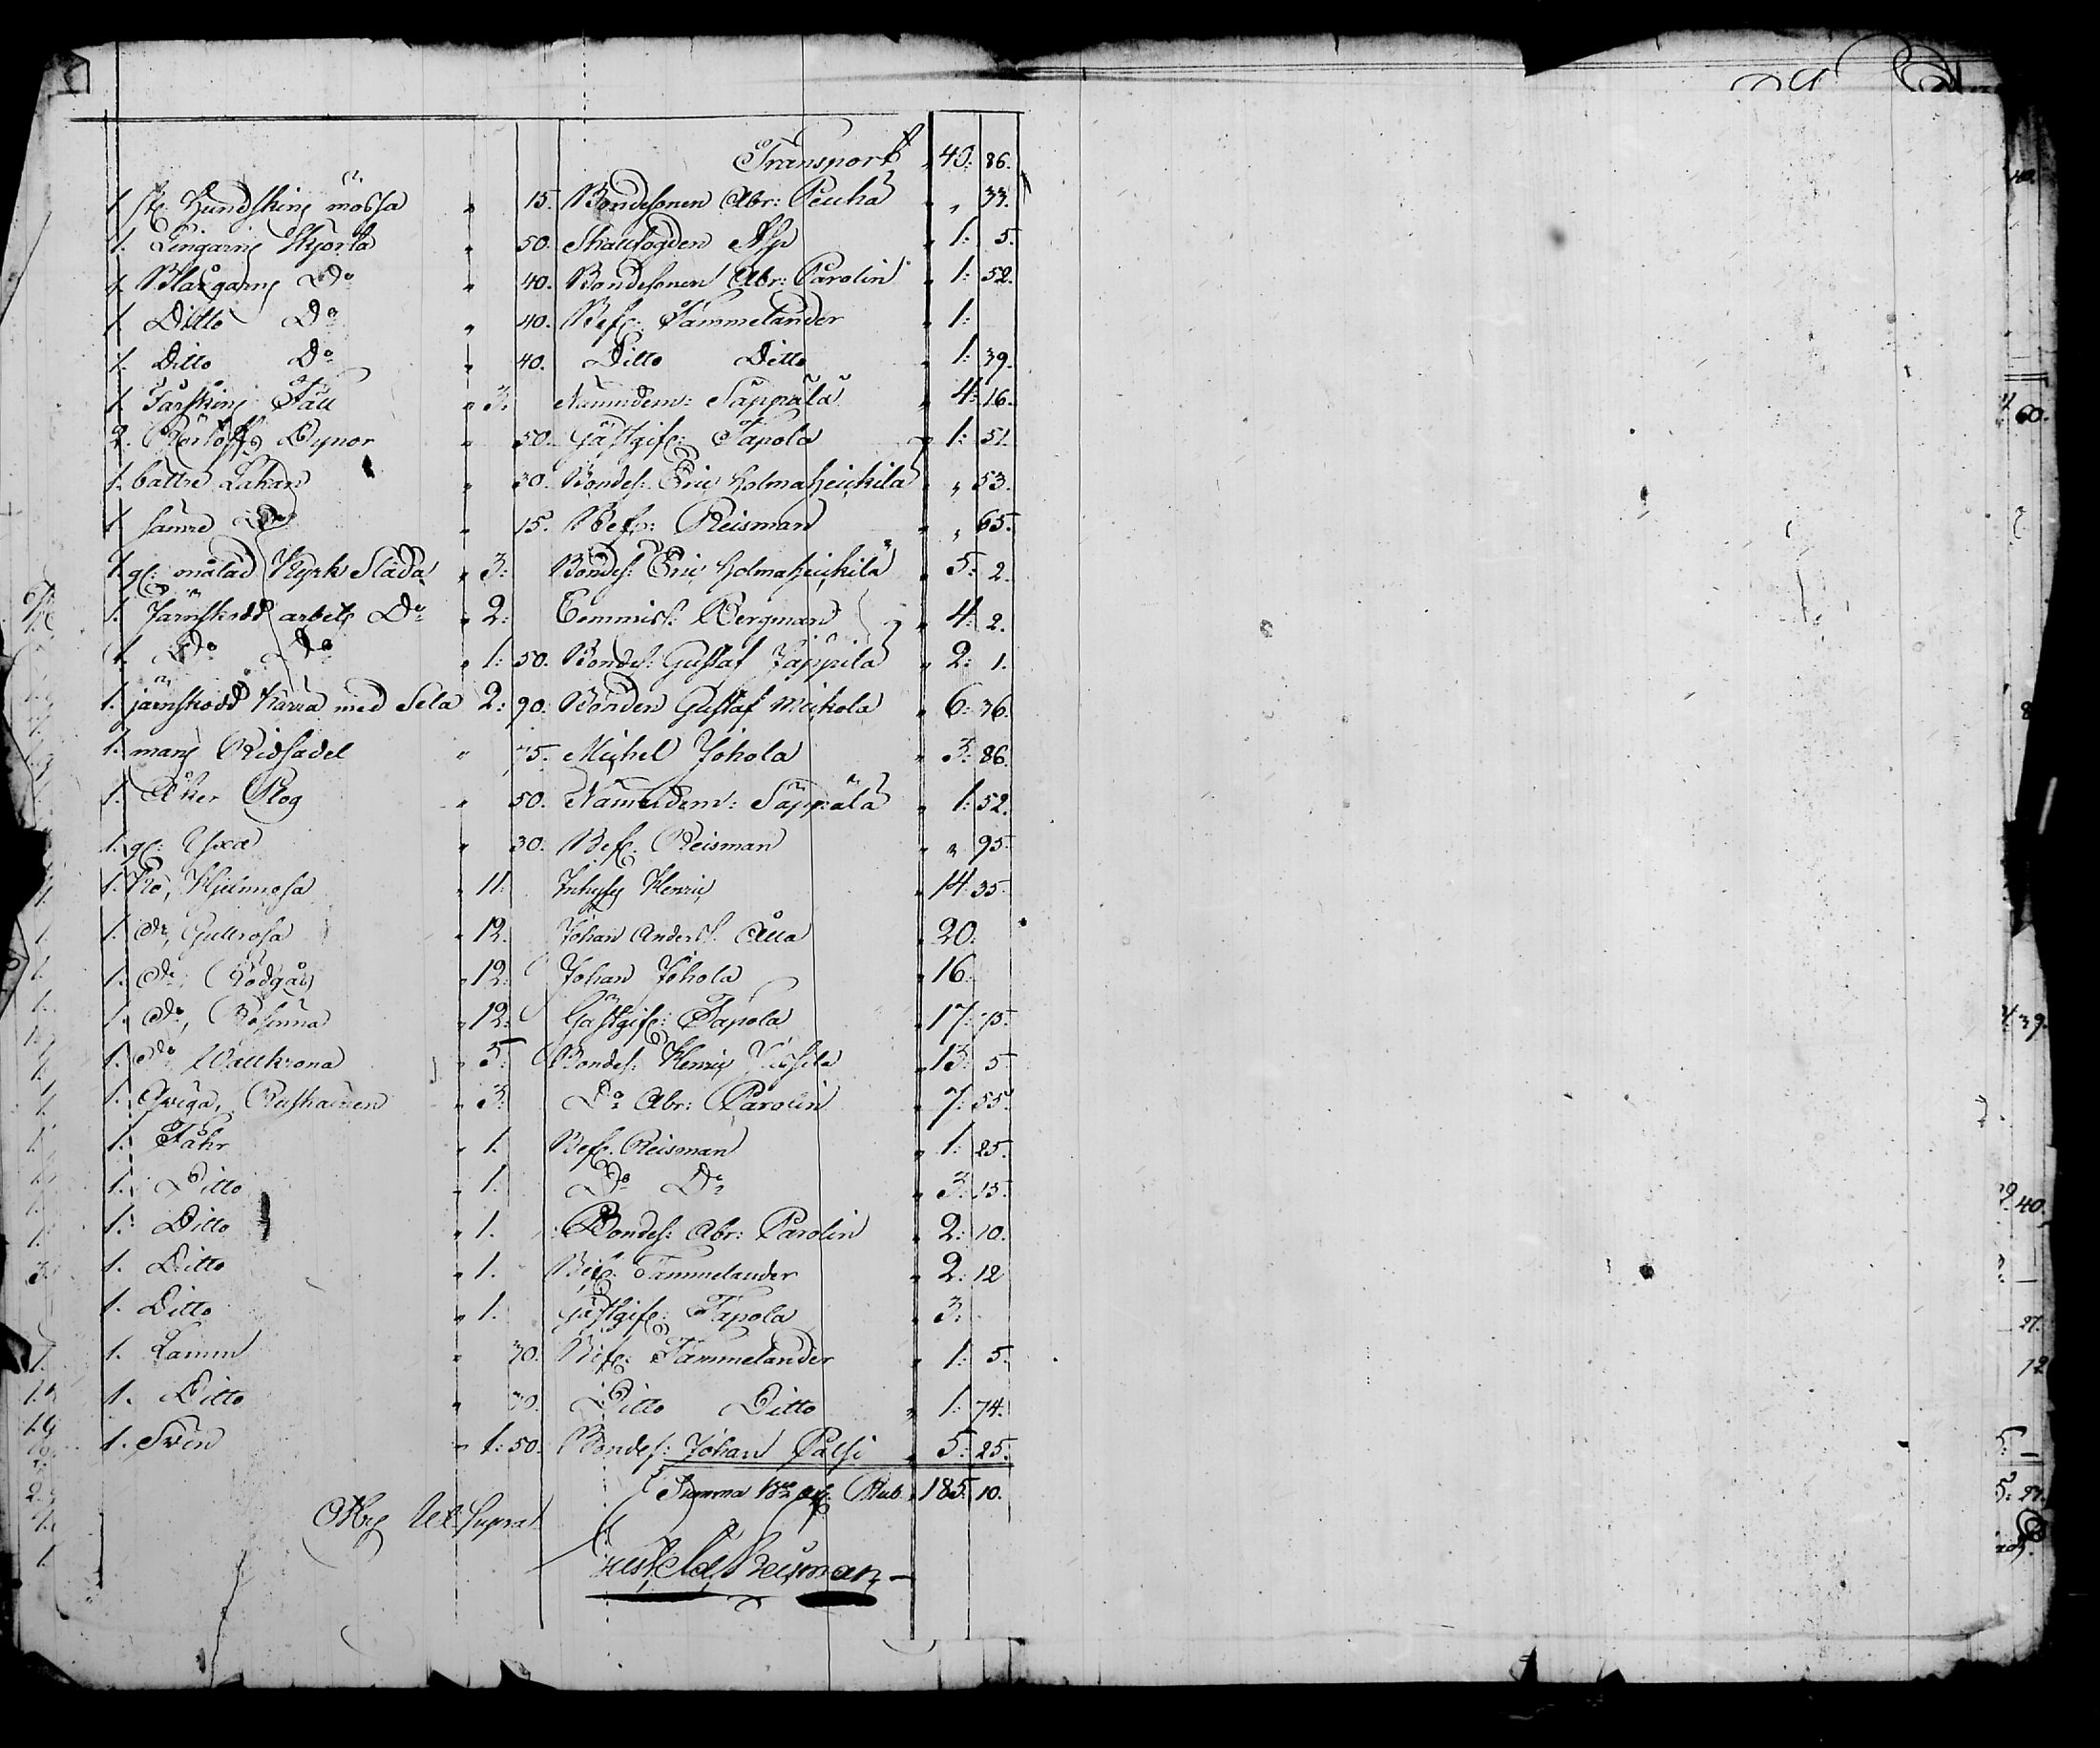 Transport „ 40: 86.
1. st: Hundskins mössa „ 15. Bondesonen Abr: Peuha „ „ 33.
1. Lingarns Skjorta „ 50. Skallfogden Asp „ 1: 5.
1. Blårgarns Do „ 40. Bondesonen Abr: Parolin „ 1: 52.
1. Ditto Do „ 40. Bef: Tammelander „ 1:
1. Ditto Do „ 40. Ditto Ditto „ 1: 39.
1. Fårskins Fäll „ 3: Nämndem: Säppälä „ 4: 16.
2. Bynor „ 50. Gästgif: Tapola „ 1: 51.
1. battre Lakan „ 30. Bondes: Eric Holmaheickilä „ „ 53.
1. sämre Do „ 15. Bef: Reisman „ „ 65.
1. gl: målad Kyrk Släda „ 3: Bondes: Eric Holmaheickilä „ 5: 2.
1. Järnskodd arbets Do „ 2: Commiss: Bergman „ 4: 2.
1. Do Do „ 1: 50. Bondes: Gustaf Jäppilä „ 2: 1.
1. järnskodd Kärra med Sela 2: 90. Bonden Gustaf Mickola „ 6: 36.
1. mans Ridsadel „ 75. Michel Johola „ 3: 86.
1. Åker Plog „ 50. Nämndem: Säppälä „ 1: 52.
1. gl: Yxa „ 30. Bef: Reisman „ „ 95.
1. Ko, Hjelmrosa „ 11: Inhyses Henric „ 14: 35.
1. Do, Gullrosa „ 12. Johan Anders: Alla „ 20:
1. Do, Rödgås „ 12: Johan Johola „ 16.
1. Do, Rosinna „ 12: Gästgif: Tapola „ 17: 75.
1. Do, Wallkrona „ 5: Bondes: Henric „ 13: 5.
1. Qviga, „ 3: Do Abr: Parolin „ 7: 55.
1. Fåhr „ 1. Bef: Reisman „ 1: 25.
1. Ditto „ 1. Do Do „ 3: 15.
1. Ditto „ 1. Bondes: Abr: Parolin „ 2: 10.
1. Ditto „ 1. Bef: Tammelander „ 2: 12
1. Ditto „ 1. Gästgif: Tapola „ 3:
1. Lamm „ 30. Bef: Tammelander „ 1: 5.
1. Ditto „ 30. Ditto Ditto „ 1: 74.
1. Svin „ 1: 50. Bondes: Johan Palsi „ 5: 25.
Summa Rub. „ 185. 10.
Ut Supra
Reisman